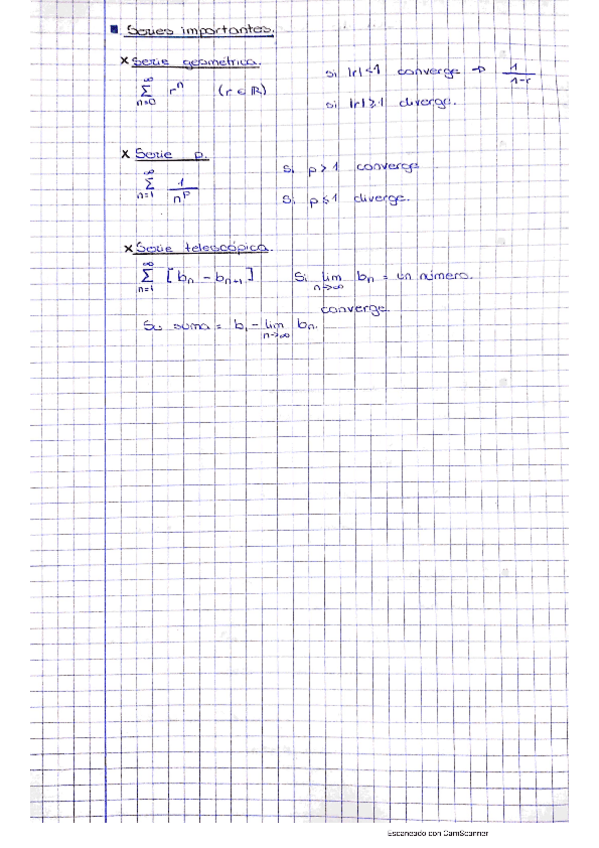 ■ Series importantes.
x Serie geométrica.
∞ Σ n=0 rⁿ (r ∈ ℝ) si |r|<1 converge → 1/(1-r)
si |r|≥1 diverge.
x Serie p.
∞ Σ n=1 1/nᵖ Si p>1 converge
Si p≤1 diverge.
x Serie telescópica.
∞ Σ n=1 [bₙ - bₙ₊₁] Si lim n→∞ bₙ = un número.
converge.
Su suma = b₁ - lim n→∞ bₙ.
Escaneado con CamScanner